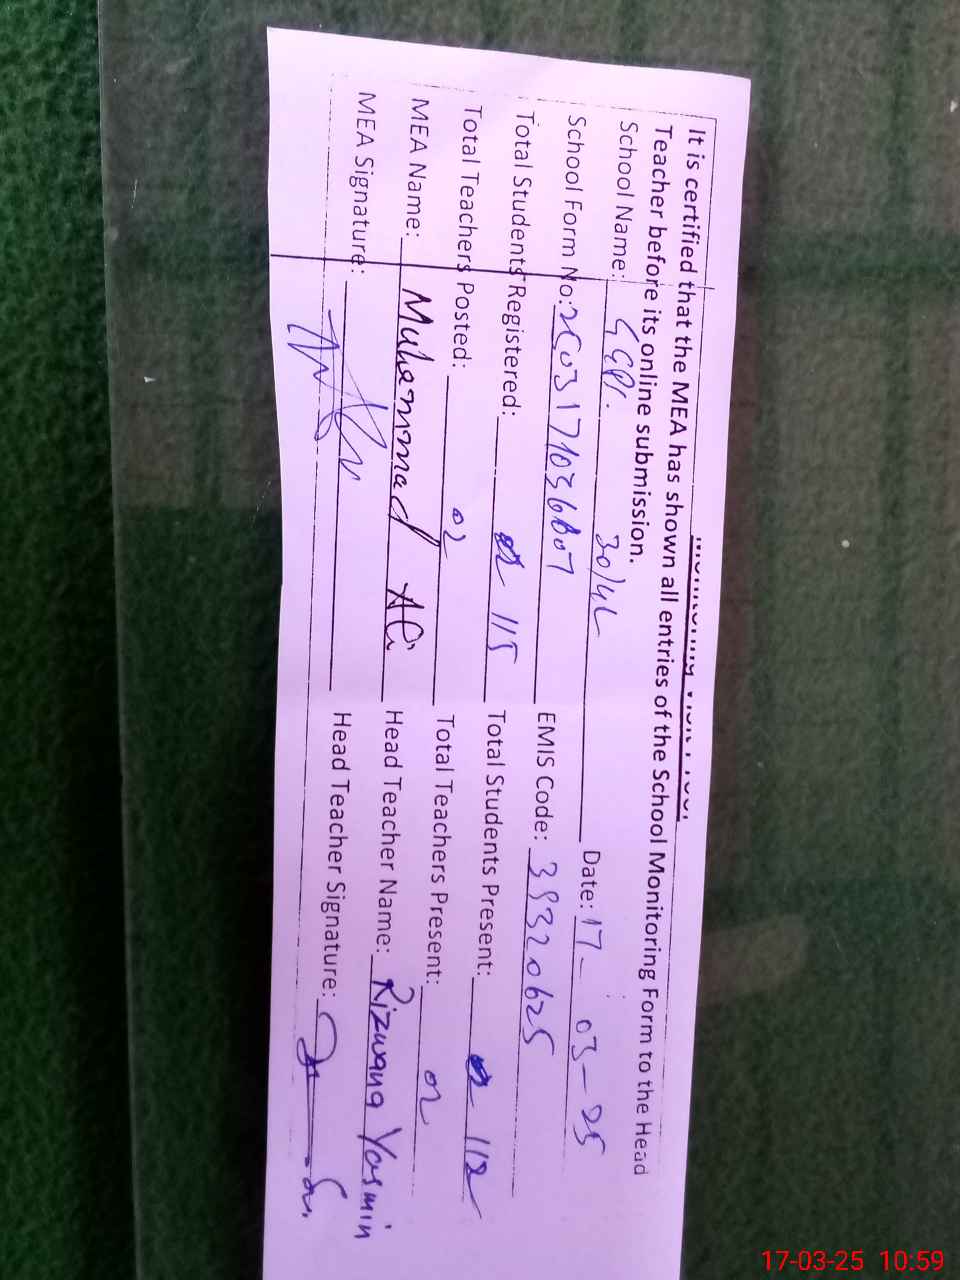 It is certified that the MEA has shown all entries of the School Monitoring Form to the Head
Teacher before its online submission.
School Name: 30/4L Date: 17-03-25
School Form No: EMIS Code: 39320625
Total Students Registered: 115 Total Students Present: 112
Total Teachers Posted: 02 Total Teachers Present: 02
MEA Name: Muhammad Ali Head Teacher Name: Rizwana Yasmin
MEA Signature: Head Teacher Signature:
17-03-25 10:59